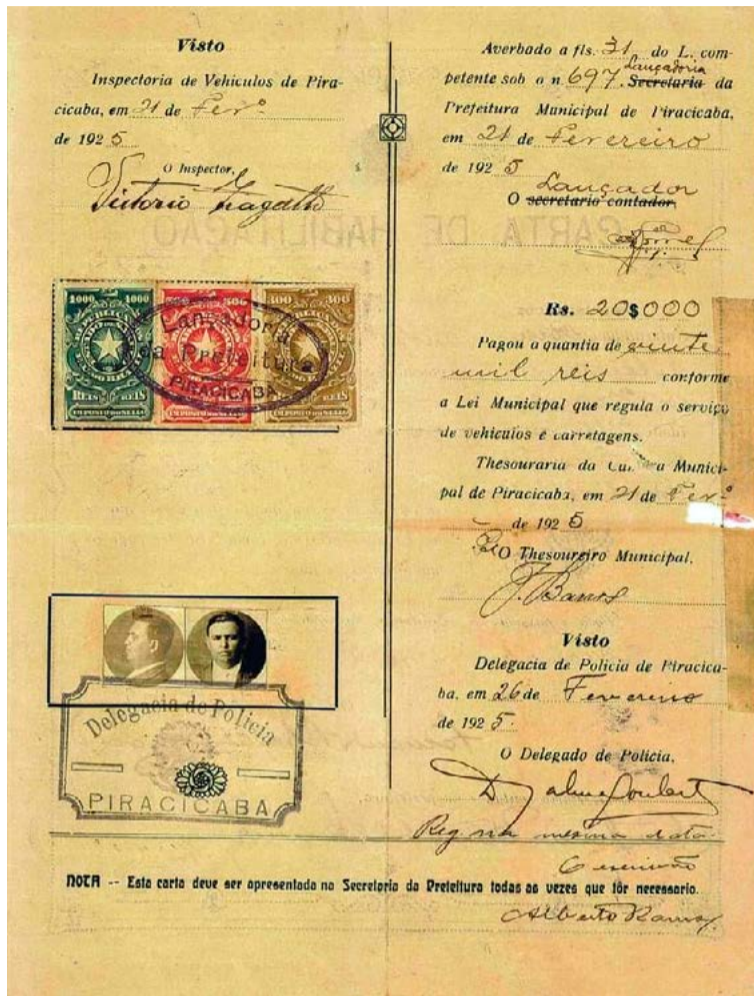 Visto
Inspectoria de Vehiculos de Pira-
cicaba, em 21 de Fevº
de 1925
O Inspector,
Victorio
1000 1000
500
300 300
REIS REIS
IMPOSTO DO SELLO
IMPOSTO DO SELLO
IMPOSTO DO SELLO
Lançadoria
da Prefeitura
PIRACICABA
Delegacia de Policia
PIRACICABA
Averbado a fls. 31 do L. com-
Lançadoria
petente sob o n. 697. Secretaria da
Prefeitura Municipal de Piracicaba,
em 21 de Fevereiro
de 1925
Lançador
O secretario contador,
CARTA DE HABILITAÇÃO
Rs. 20$000
Pagou a quantia de vinte
mil reis conforme
a Lei Municipal que regula o serviço
de vehiculos e carretagens.
Thesouraria da Camara Munici-
pal de Piracicaba, em 21 de Fevº
de 1925
O Thesoureiro Municipal,
J. Barros
Visto
Delegacia de Policia de Piracica-
ba, em 26 de Fevereiro
de 1925
O Delegado de Policia,
Reg. na mesma data
O escrivão
NOTA -- Esta carta deve ser apresentada na Secretaria da Prefeitura todas as vezes que fôr necessario.
Alberto